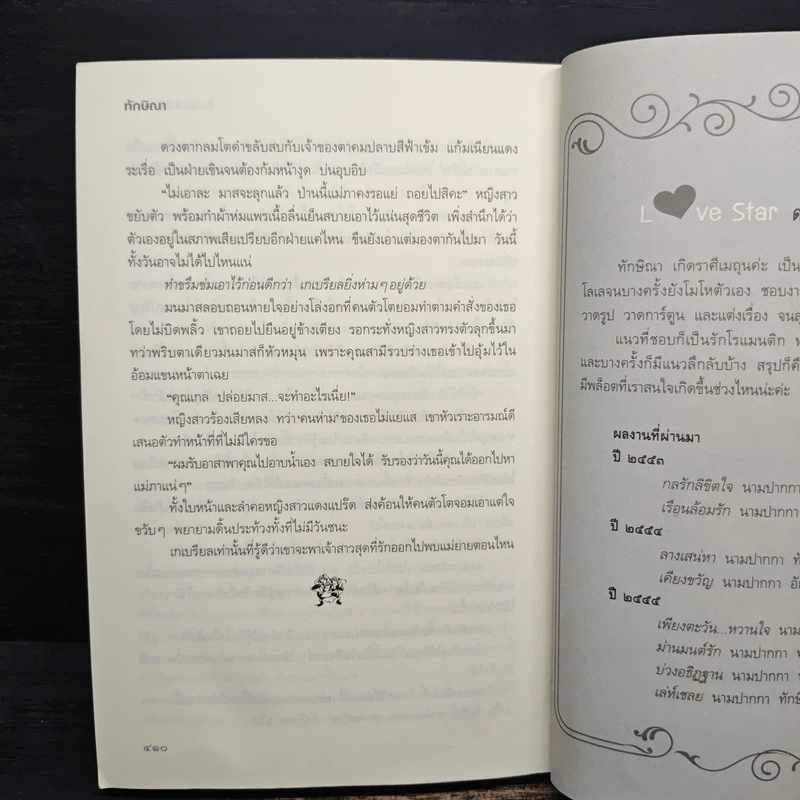 ทักษิณา
ดวงตากลมโตดำขลับสบกับเจ้าของตาคมปลาบสีฟ้าเข้ม แก้มเนียนแดง
ระเรื่อ เป็นฝ่ายเขินจนต้องก้มหน้างุด บ่นอุบอิบ
“ไม่เอาละ มาสจะลุกแล้ว ป่านนี้แม่ภาคงรอแย่ ถอยไปสิคะ” หญิงสาว
ขยับตัว พร้อมกำผ้าห่มแพรเนื้อลื่นเย็นสบายเอาไว้แน่นสุดชีวิต เพิ่งสำนึกได้ว่า
ตัวเองอยู่ในสภาพเสียเปรียบอีกฝ่ายแค่ไหน ขืนยังเอาแต่มองตากันไปมา วันนี้
ทั้งวันอาจไม่ได้ไปไหนแน่
ทำขรึมข่มเอาไว้ก่อนดีกว่า เกเบรียลยิ่งห่ามๆอยู่ด้วย
มนมาสลอบถอนหายใจอย่างโล่งอกที่คนตัวโตยอมทำตามคำสั่งของเธอ
โดยไม่บิดพลิ้ว เขาถอยไปยืนอยู่ข้างเตียง รอกระทั่งหญิงสาวทรงตัวลุกขึ้นมา
ทว่าพริบตาเดียวมนมาสก็หัวหมุน เพราะคุณสามีรวบร่างเธอเข้าไปอุ้มไว้ใน
อ้อมแขนหน้าตาเฉย
“คุณเกล ปล่อยมาส...จะทำอะไรเนี่ย!”
หญิงสาวร้องเสียหลง ทว่า‘คนห่าม’ของเธอไม่แยแส เขาหัวเราะอารมณ์ดี
เสนอตัวทำหน้าที่ที่ไม่มีใครขอ
“ผมรับอาสาพาคุณไปอาบน้ำเอง สบายใจได้ รับรองว่าวันนี้คุณได้ออกไปหา
แม่ภาแน่ๆ”
ทั้งใบหน้าและลำคอหญิงสาวแดงแปร๊ด ส่งค้อนให้คนตัวโตจอมเอาแต่ใจ
ขวับๆ พยายามดิ้นประท้วงทั้งที่ไม่มีวันชนะ
เกเบรียลเท่านั้นที่รู้ดีว่าเขาจะพาเจ้าสาวสุดที่รักออกไปพบแม่ยายตอนไหน
๔๑๐
L ve Star
ทักษิณา เกิดราศีเมถุนค่ะ เป็น
โลเลจนบางครั้งยังโมโหตัวเอง ชอบงา
วาดรูป วาดการ์ตูน และแต่งเรื่อง จนส
แนวที่ชอบก็เป็นรักโรแมนติก ห
และบางครั้งก็มีแนวลึกลับบ้าง สรุปก็คื
มีพล็อตที่เราสนใจเกิดขึ้นช่วงไหนน่ะค่ะ
ผลงานที่ผ่านมา
ปี ๒๕๕๓
กลรักลิขิตใจ นามปากกา
เรือนล้อมรัก นามปากกา
ปี ๒๕๕๔
ลางเสน่หา นามปากกา ทั
เคียงขวัญ นามปากกา อั
ปี ๒๕๕๕
เพียงตะวัน...หวานใจ นาม
ม่านมนต์รัก นามปากกา
บ่วงอธิฏฐาน นามปากกา
เล่ห์เชลย นามปากกา ทักษิ